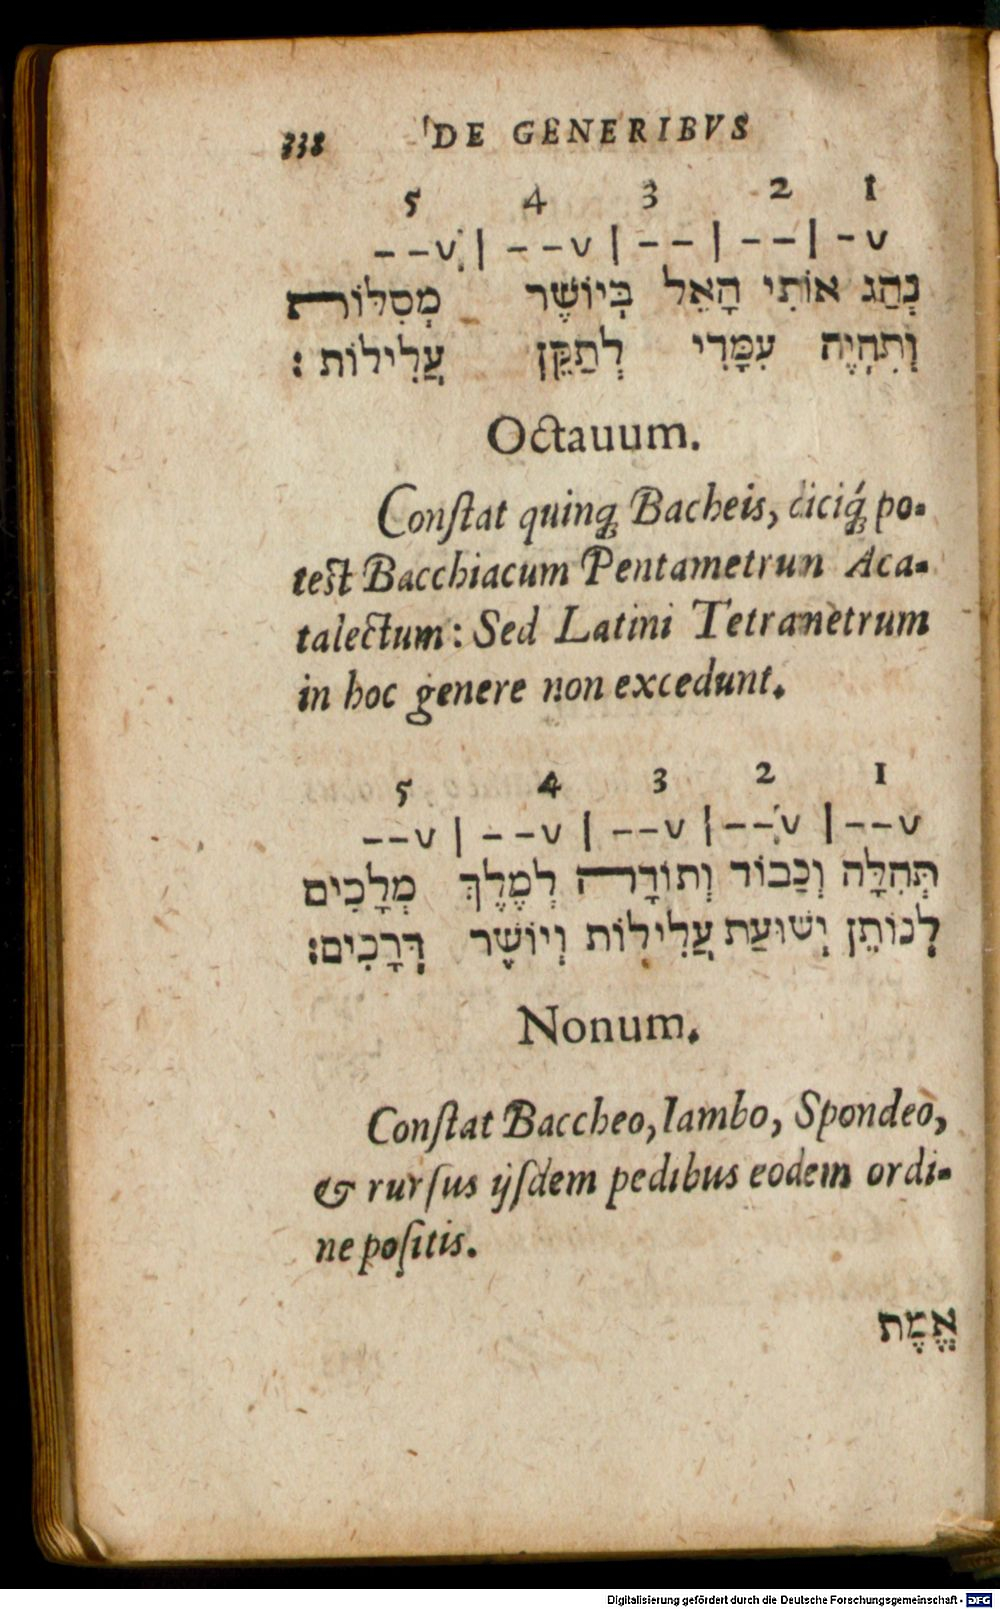 338 DE GENERIBVS
5 4 3 2 1
– – v | – – v | – – | – – | – v
נְהַג אוֹתִי הָאֵל בְּיוֹשֶׁר מְסִלּוֹת
וְתִהְיֶה עִמָּדִי לְתַקֵּן עֲלִילוֹת :
Octauum.
Conſtat quinq; Bacheis, diciq́; po-
test Bacchiacum Pentametrun Aca-
talectum: Sed Latini Tetranetrum
in hoc genere non excedunt.
5 4 3 2 1
– – v | – – v | – – v | – – v | – – v
תְּהִלָּה וְכַבוֹד וְתוֹדָה לְמֶלֶךְ מְלָכִים
לְנוֹתֵן יְשׁוּעַת עֲלִילוֹת וְיוֹשֶׁר דְּרָכִים:
Nonum.
Conſtat Baccheo, Iambo, Spondeo,
& rurſus ijſdem pedibus eodem ordi-
ne poſitis.
אֱמֶת
Digitalisierung gefördert durch die Deutsche Forschungsgemeinschaft - DFG